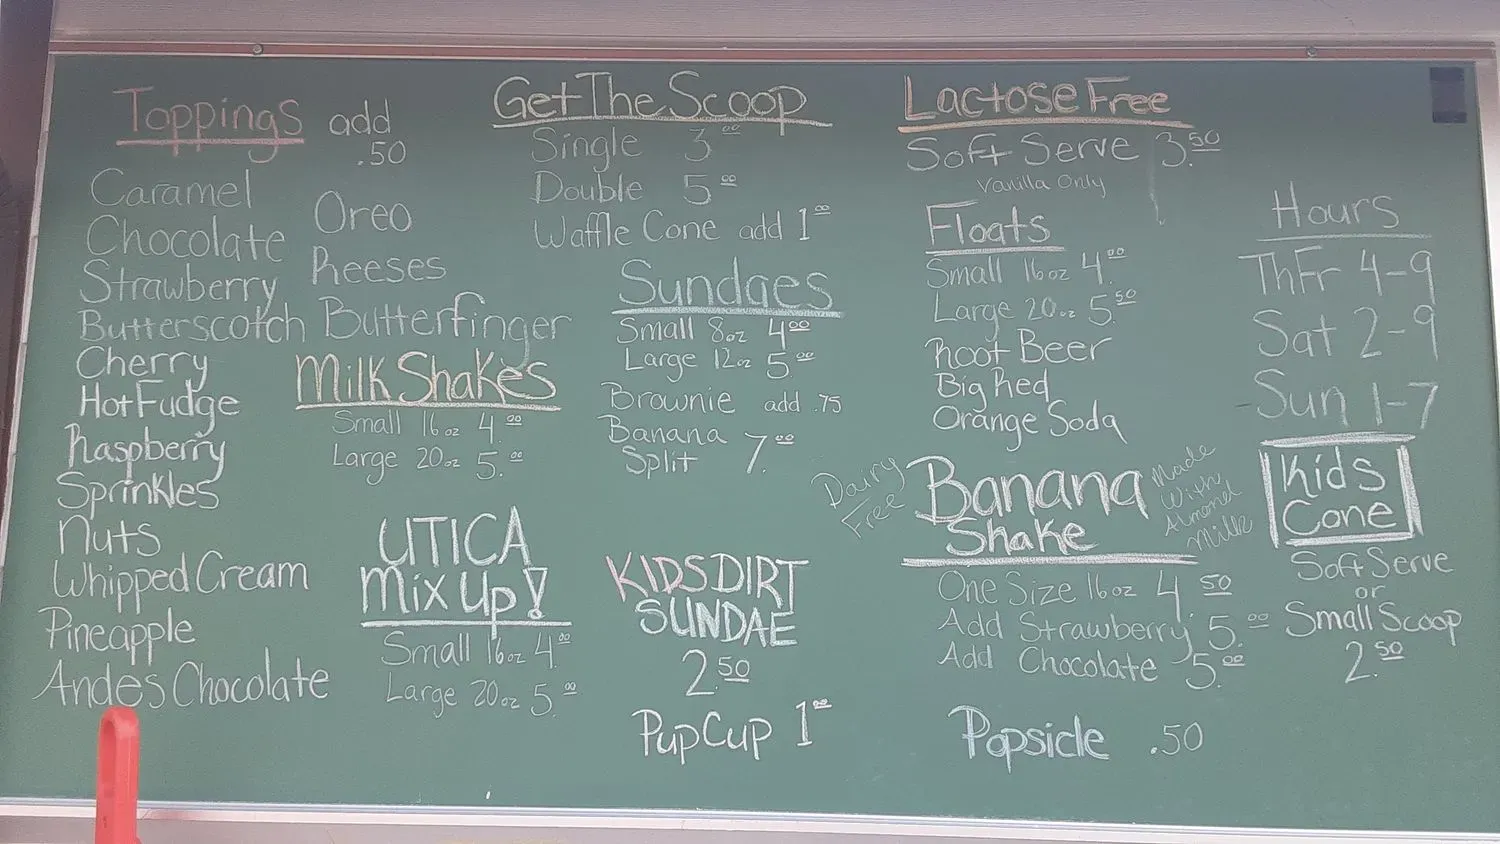 Toppings add .50
Caramel
Chocolate
Strawberry
Butterscotch
Cherry
Hot Fudge
Raspberry
Sprinkles
Nuts
Whipped Cream
Pineapple
Andes Chocolate
Oreo
Reeses
Butterfinger
Milk Shakes
Small 16oz 4.00
Large 20oz 5.00
UTICA
Mix Up!
Small 16oz 4.00
Large 20oz 5.00
Get The Scoop
Single 3.00
Double 5.00
Waffle Cone add 1.00
Sundaes
Small 8oz 4.00
Large 12oz 5.00
Brownie add .75
Banana
Split 7.00
KIDS DIRT
SUNDAE
2.50
Pup Cup 1.00
Lactose Free
Soft Serve 3.50
Vanilla Only
Floats
Small 16oz 4.00
Large 20oz 5.50
Root Beer
Big Red
Orange Soda
Dairy
Free
Banana
Shake
Made
With
Almond
Milk
One Size 16oz 4.50
Add Strawberry 5.00
Add Chocolate 5.00
Popsicle .50
Hours
ThFr 4-9
Sat 2-9
Sun 1-7
Kids
Cone
Soft Serve
or
Small Scoop
2.50